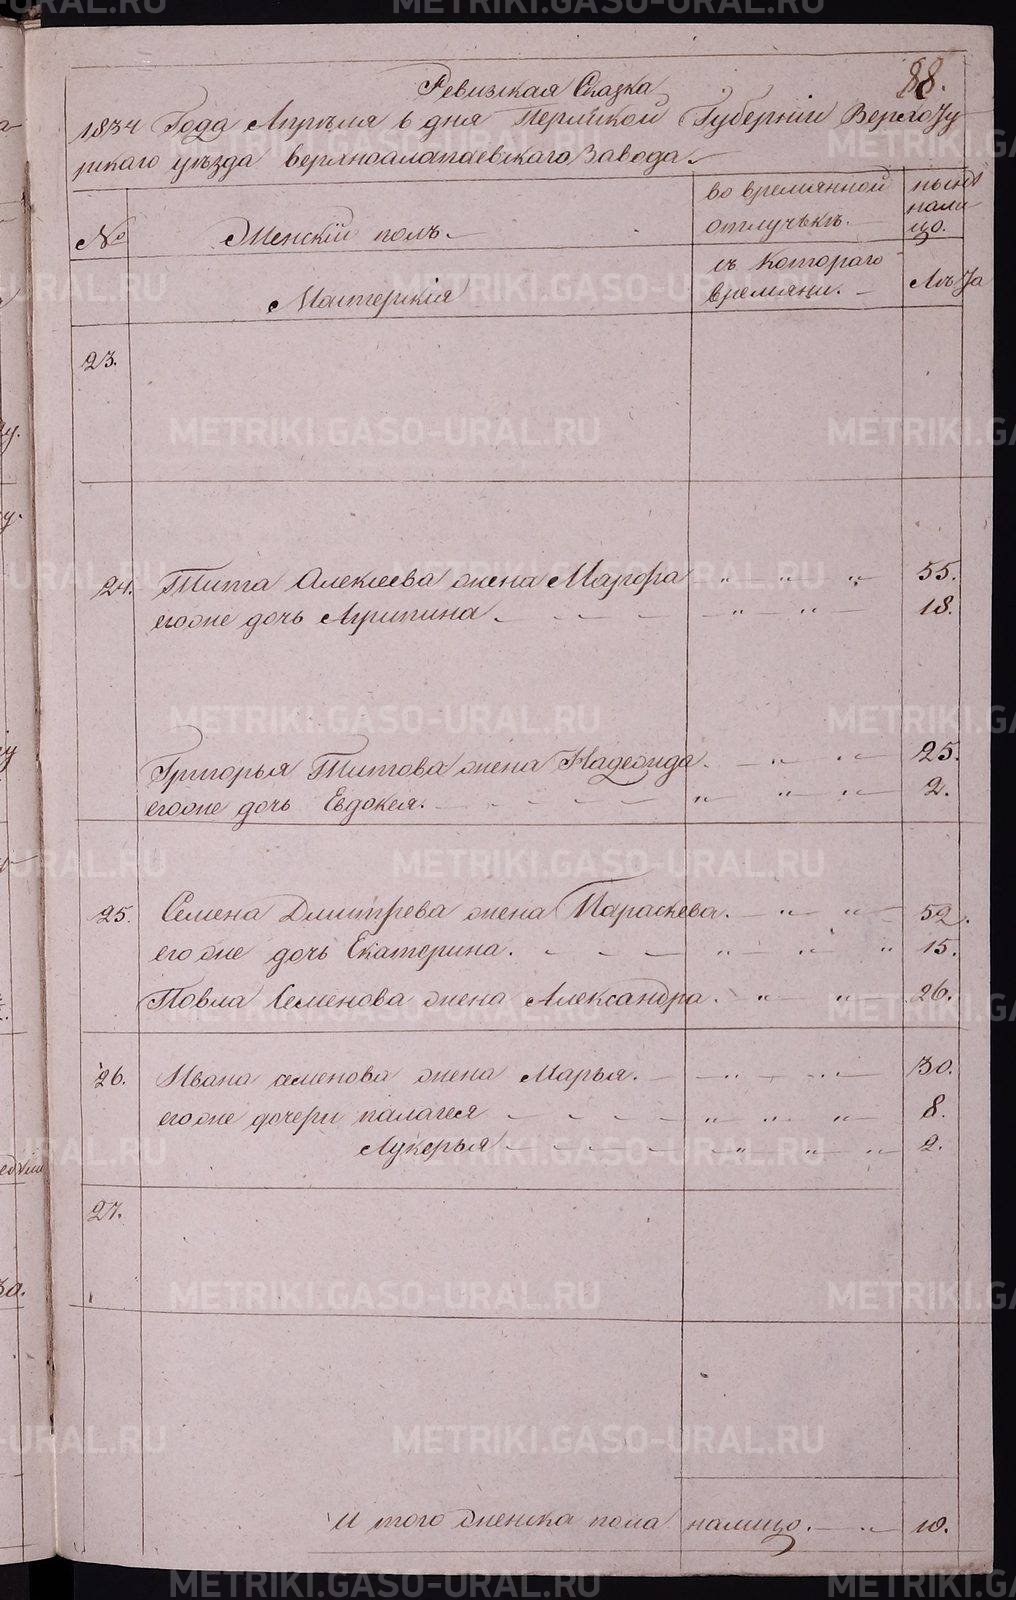 88.
Ревизкая Сказка
1834 Года Апреля 6 дня Пермской Губернiи Верхоту
рскаго уѣзда верхноалапаевскаго Завода.
№
Женскiй полъ.
во времянной
отлучькѣ.
нынѣ
нали
цо.
Мастерскiя
съ Котораго
времяни.
Лѣта
23.
24. Тита Алексеева жена Марфа 55.
егоже дочь Агрипина 18.
Григорья Титова жена Надежда 25.
егоже дочь Евдокея. 2.
25. Семена Дмитрева жена Параскева. 52.
егоже дочь Екатерина. 15.
Повла Семенова жена Александра. 26.
26. Ивана семенова жена Марья. 30.
егоже дочери палагея 8.
Лукерья 2.
27.
и того женска пола налицо. 10.
METRIKI.GASO-URAL.RU